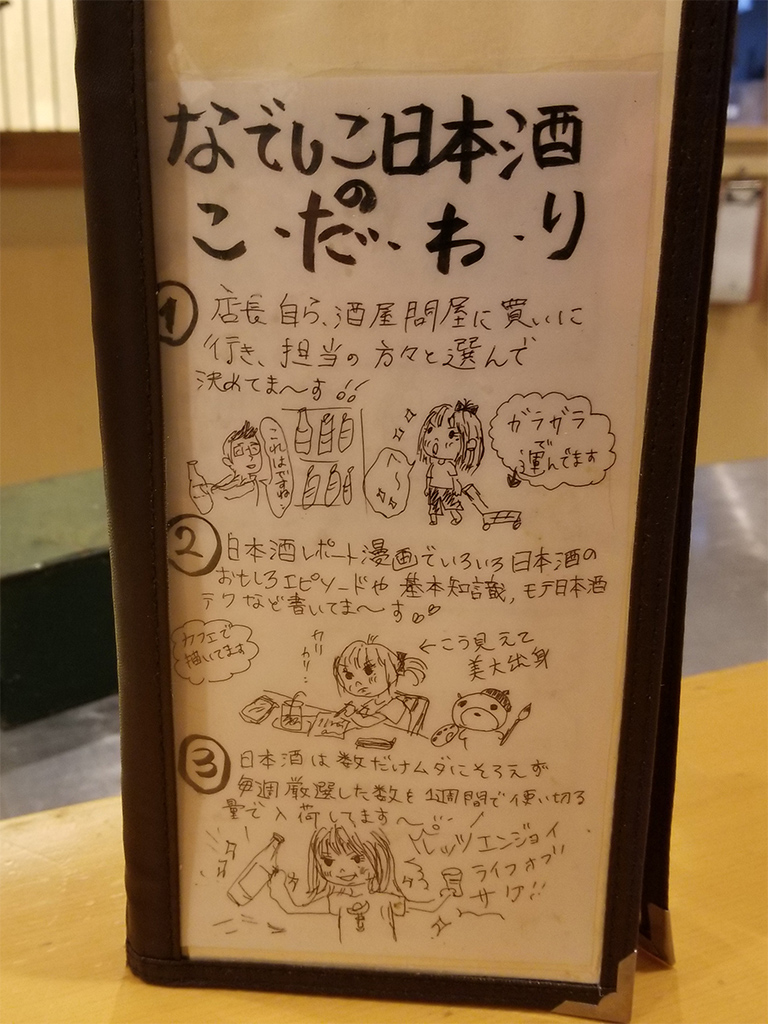 なでしこ日本酒
の
こ・だ・わ・り
① 店長自ら、酒屋問屋に買いに
行き、担当の方々と選んで
決めてま〜す!!
これはですね、
へ〜
ガラガラ
で
運んでます
② 日本酒レポート漫画でいろいろ日本酒の
おもしろエピソードや基本知識，モテ日本酒
テクなど書いてま〜す
カフェで
描いてます
カリ
カリ…
←こう見えて
美大出身
③ 日本酒は数だけムダにそろえず
毎週厳選した数を1週間で使い切る
量で入荷してます〜
レッツエンジョイ
ライフオブ
サケ!!